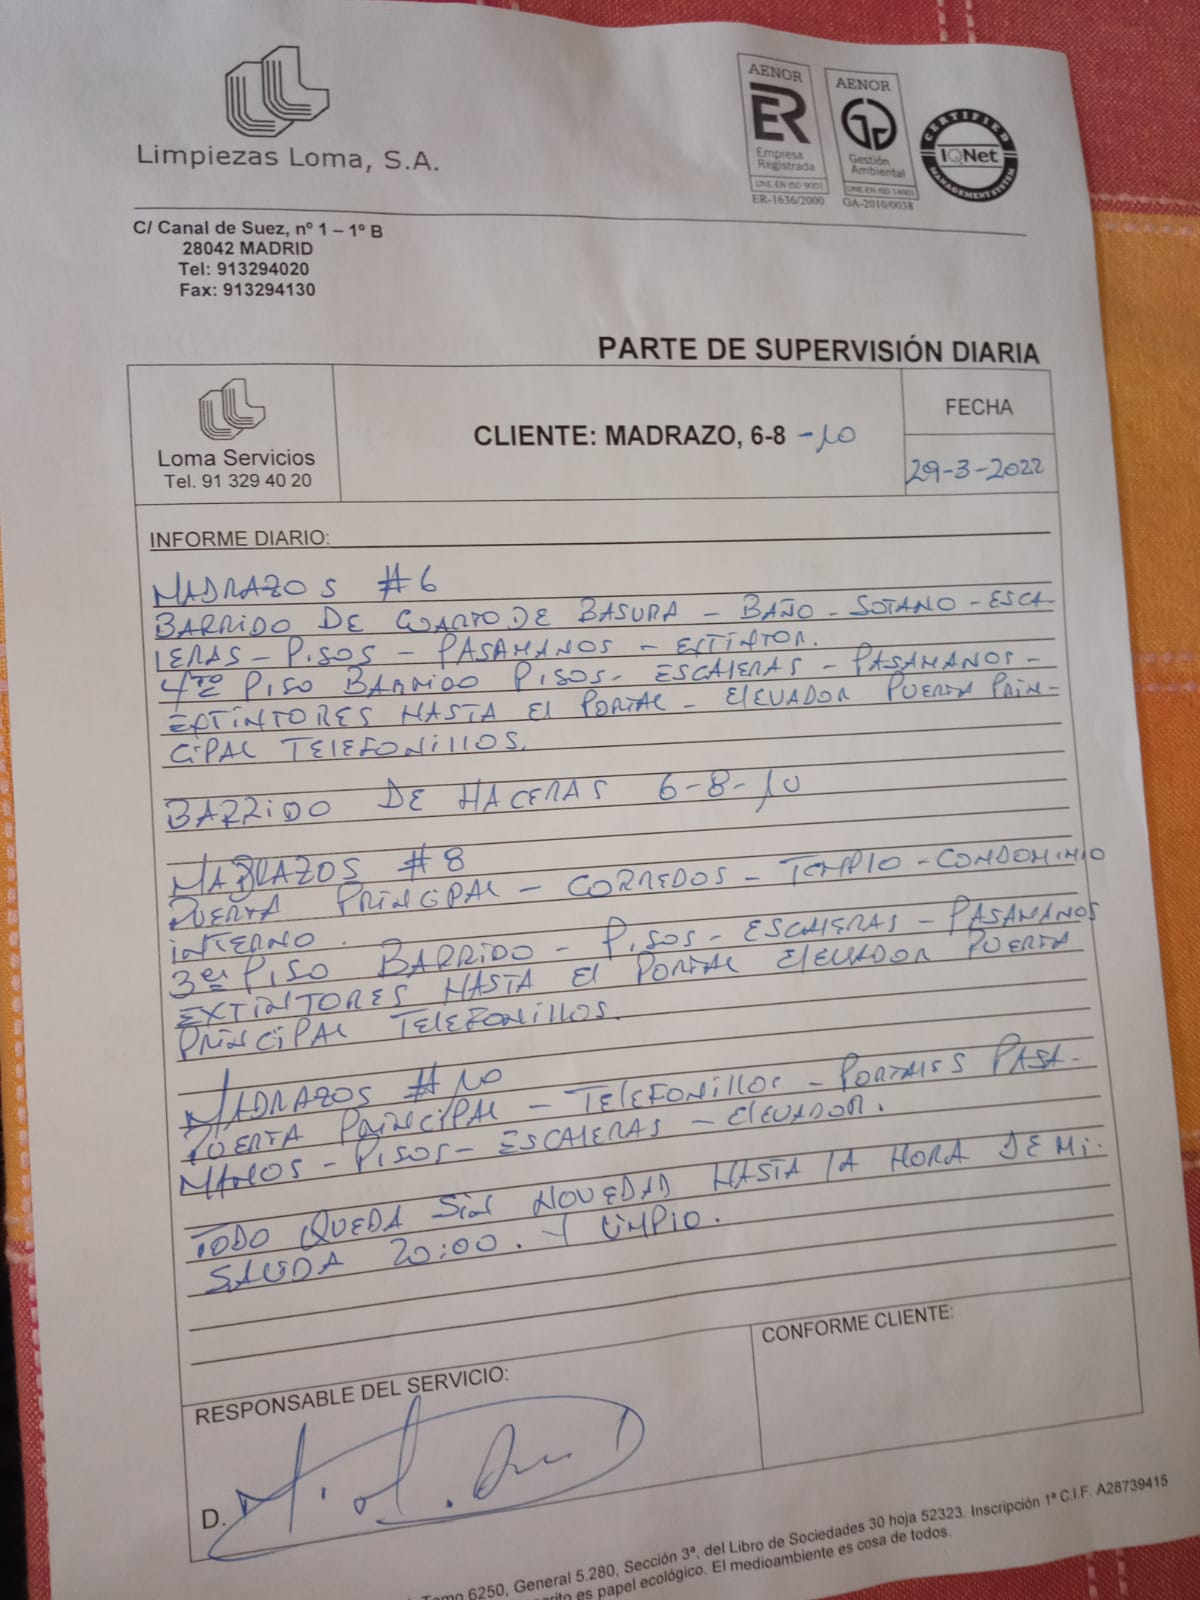 Limpiezas Loma, S.A.
AENOR
ER
Empresa
Registrada
UNE-EN ISO 9001
ER-1636/2000
AENOR
Gestión
Ambiental
UNE-EN ISO 14001
GA-2010/0038
CERTIFIED
IQNet
MANAGEMENT SYSTEM
C/ Canal de Suez, nº 1 – 1º B
28042 MADRID
Tel: 913294020
Fax: 913294130
PARTE DE SUPERVISIÓN DIARIA
Loma Servicios
Tel. 91 329 40 20
CLIENTE: MADRAZO, 6-8 -10
FECHA
29-3-2022
INFORME DIARIO:
MADRAZOS #6
BARRIDO DE CUARTO DE BASURA - BAÑO - SOTANO - ESCA-
LERAS - PISOS - PASAMANOS - EXTINTOR.
4to PISO BARRIDO PISOS - ESCALERAS - PASAMANOS -
EXTINTORES HASTA El PORTAL - ElEVADOR PUERTA PRIN-
CIPAL TELEFONILLOS.
BARRIDO DE HACERAS 6-8-10
MADRAZOS #8
PUERTA PRINCIPAL - CORREDOS - TEMPLO - CONDOMINIO
INTERNO.
3er PISO BARRIDO - PISOS - ESCALERAS - PASAMANOS
EXTINTORES HASTA El PORTAL ElEVADOR PUERTA
PRINCIPAL TELEFONILLOS.
MADRAZOS #10
PUERTA PRINCIPAL - TELEFONILLOS - PORTALES PASA-
MANOS - PISOS - ESCALERAS - ElEVADOR.
TODO QUEDA SIN NOVEDAD HASTA LA HORA DE MI
SALIDA 20:00. Y LIMPIO.
RESPONSABLE DEL SERVICIO:
CONFORME CLIENTE:
D.
Tomo 6250, General 5.280, Sección 3ª, del Libro de Sociedades 30 hoja 52323. Inscripción 1ª C.I.F. A28739415
es papel ecológico. El medioambiente es cosa de todos.